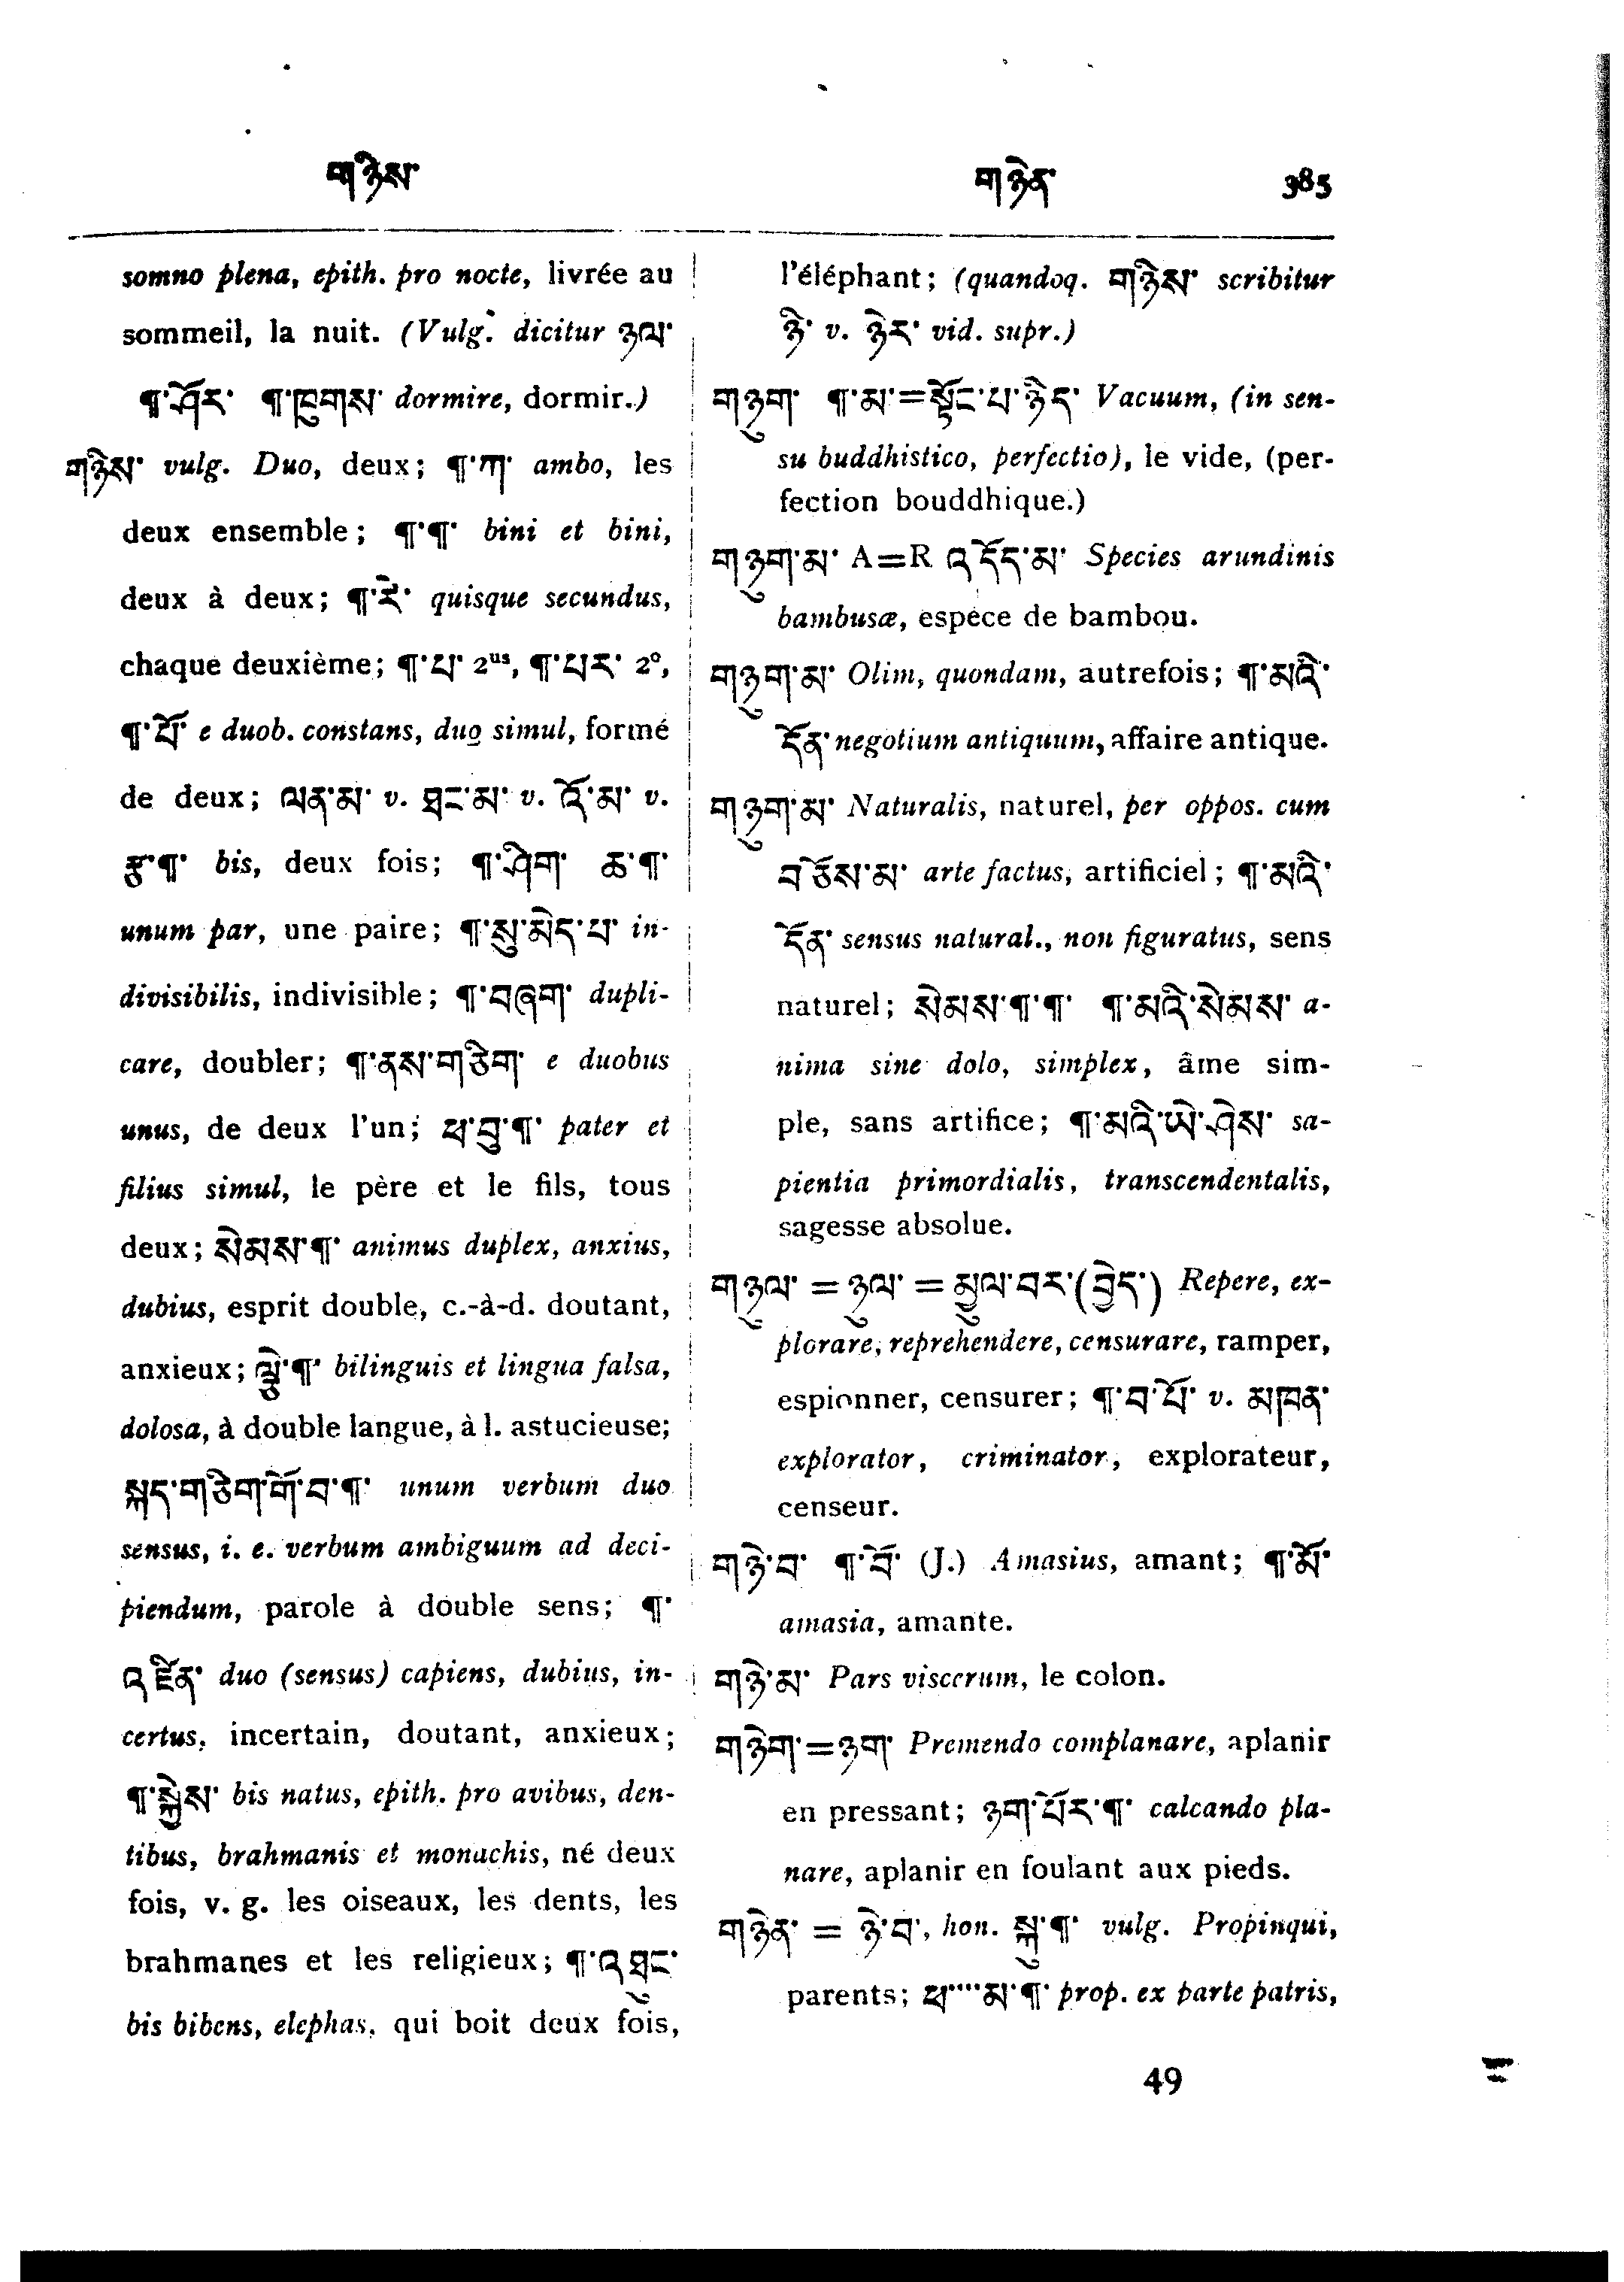 གཉིས་
གཉེན་ 385
somno plena, epith. pro nocte, livrée au
sommeil, la nuit. (Vulg. dicitur ཉལ་
¶་ཤོར་ ¶་ཁུགས་ dormire, dormir.)
གཉིས་ vulg. Duo, deux; ¶་ཀ་ ambo, les
deux ensemble; ¶་¶་ bini et bini,
deux à deux; ¶་རེ་ quisque secundus,
chaque deuxième; ¶་པ་ 2us, ¶་པར་ 2º,
¶་པོ་ e duob. constans, duo simul, formé
de deux; ལན་མ་ v. ཐང་མ་ v. འོ་མ་ v.
ཚ་¶་ bis, deux fois; ¶་ཤིག་ ཆ་¶་
unum par, une paire; ¶་སུ་མེད་པ་ in-
divisibilis, indivisible; ¶་བཞག་ dupli-
care, doubler; ¶་ནས་གཅིག་ e duobus
unus, de deux l'un; ཕ་བུ་¶་ pater et
filius simul, le père et le fils, tous
deux; སེམས་¶་ animus duplex, anxius,
dubius, esprit double, c.-à-d. doutant,
anxieux; ལྕེ་¶་ bilinguis et lingua falsa,
dolosa, à double langue, à l. astucieuse;
སྐད་གཅིག་གོ་བ་¶་ unum verbum duo
sensus, i. e. verbum ambiguum ad deci-
piendum, parole à double sens; ¶་
འཛིན་ duo (sensus) capiens, dubius, in-
certus, incertain, doutant, anxieux;
¶་སྐྱེས་ bis natus, epith. pro avibus, den-
tibus, brahmanis et monachis, né deux
fois, v. g. les oiseaux, les dents, les
brahmanes et les religieux; ¶་འཐུང་
bis bibens, elephas, qui boit deux fois,
l'éléphant; (quandoq. གཉིས་ scribitur
ཉི་ v. ཉེར་ vid. supr.)
གཉུག་ ¶་མ་=སྟོང་པ་ཉིད་ Vacuum, (in sen-
su buddhistico, perfectio), le vide, (per-
fection bouddhique.)
གཉུག་མ་ A=R འདོད་མ་ Species arundinis
bambusæ, espèce de bambou.
གཉུག་མ་ Olim, quondam, autrefois; ¶་མའི་
དོན་ negotium antiquum, affaire antique.
གཉུག་མ་ Naturalis, naturel, per oppos. cum
བཅོས་མ་ arte factus, artificiel; ¶་མའི་
དོན་ sensus natural., non figuratus, sens
naturel; སེམས་¶་¶་ ¶་མའི་སེམས་ a-
nima sine dolo, simplex, âme sim-
ple, sans artifice; ¶་མའི་ཡེ་ཤེས་ sa-
pientia primordialis, transcendentalis,
sagesse absolue.
གཉུལ་ = ཉུལ་ = མྱུལ་བར་(བྱེད་) Repere, ex-
plorare, reprehendere, censurare, ramper,
espionner, censurer; ¶་བ་པོ་ v. མཁན་
explorator, criminator, explorateur,
censeur.
གཉེ་བ་ ¶་བོ་ (J.) Amasius, amant; ¶་མོ་
amasia, amante.
གཉེ་མ་ Pars viscerum, le colon.
གཉེག་=ཉག་ Premendo complanare, aplanir
en pressant; ཉག་པོར་¶་ calcando pla-
nare, aplanir en foulant aux pieds.
གཉེན་ = ཉེ་བ་, hon. སྐུ་¶་ vulg. Propinqui,
parents; ཕ་···མ་¶་ prop. ex parte patris,
49